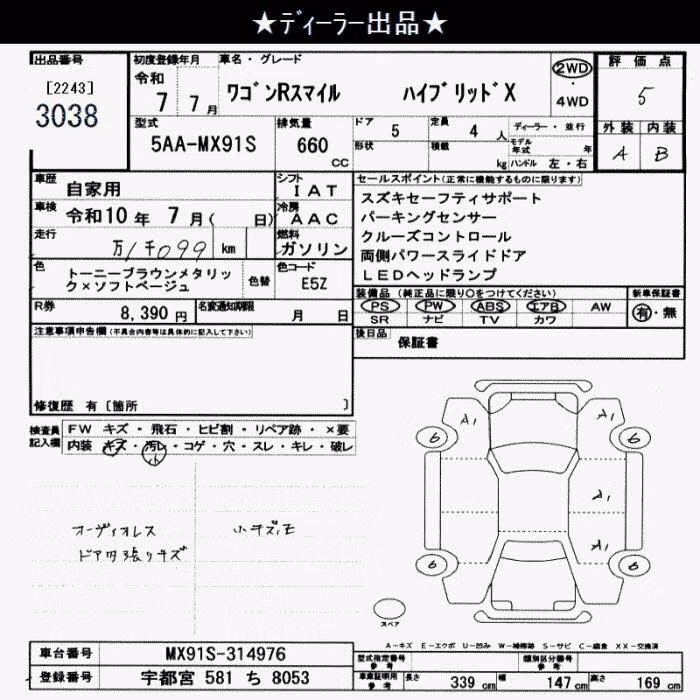 ★ディーラー出品★
出品番号
[2243]
3038
初度登録年月
令和
7 7月
車名・グレード
ワゴンRスマイル ハイブリッドX
2WD
・
4WD
評価点
5
外装 内装
A B
型式
5AA-MX91S
排気量
660
CC
ドア
5
定員
4 人
形状
積載
kg
ディーラー・並行
モデル年式 年
ハンドル 左・右
車歴
自家用
シフト
IAT
車検
令和10年 7月( 日)
冷房
AAC
走行
万1千099 km
燃料
ガソリン
色
トーニーブラウンメタリック×ソフトベージュ
色替
色コード
E5Z
R券
8,390円
名変通知期限
月 日
セールスポイント(正常に機能するものに限ります)
スズキセーフティサポート
パーキングセンサー
クルーズコントロール
両側パワースライドドア
LEDヘッドランプ
装備品(純正品に限り○をつけてください)
PS PW ABS エアB AW
SR ナビ TV カワ
新車保証書
有・無
後日品
保証書
注意事項申告欄(不具合内容等は具体的に記入して下さい)
修復歴 有〔箇所 〕
検査員
記入欄
FW キズ・飛石・ヒビ割・リペア跡・×要
内装 キズ・汚レ・コゲ・穴・スレ・キレ・破レ
小
オーディオレス
ドア内張りキズ
小キズ、モ
A1
A1
6
6
A1
A1
6
6
スペア
A-キズ E-エクボ U-凹み W-補修跡 S-サビ C-腐食 XX-交換済
車台番号
MX91S-314976
登録番号
宇都宮 581 ち 8053
型式指定番号
参考
類別区分番号
参考
車庫証明用
参考
長さ 339 cm
幅 147 cm
高さ 169 cm